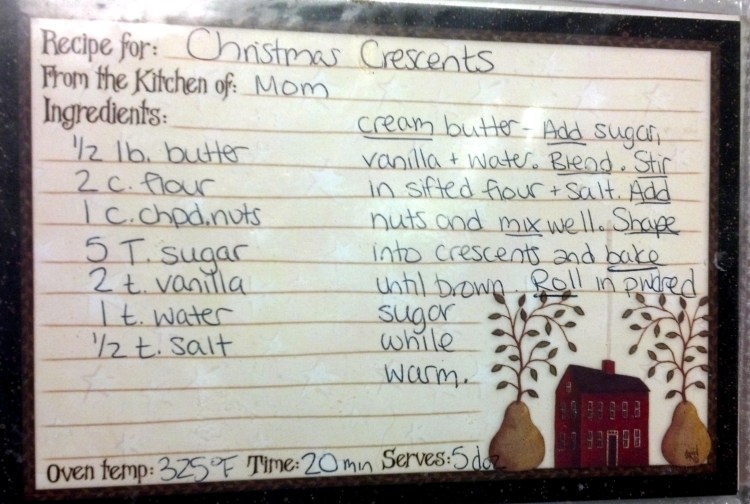 Recipe for: Christmas Crescents
From the Kitchen of: Mom
Ingredients:
1/2 lb. butter
2 c. flour
1 c. chpd. nuts
5 T. sugar
2 t. vanilla
1 t. water
1/2 t. salt
cream butter - Add sugar,
vanilla + water. Blend. Stir
in sifted flour + salt. Add
nuts and mix well. Shape
into crescents and bake
until brown. Roll in pwdred
sugar
while
warm.
Oven temp: 325°F Time: 20 min Serves: 5 doz